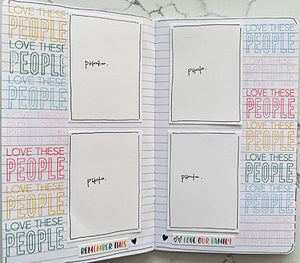 LOVE THESE
PEOPLE
LOVE THESE
PEOPLE
LOVE THESE
PEOPLE
LOVE THESE
PEOPLE
LOVE THESE
PEOPLE
LOVE THESE
PEOPLE
REMEMBER THIS
LOVE THESE
PEOPLE
LOVE THESE
PEOPLE
LOVE THESE
PEOPLE
LOVE THESE
PEOPLE
LOVE THESE
PEOPLE
LOVE OUR FAMILY